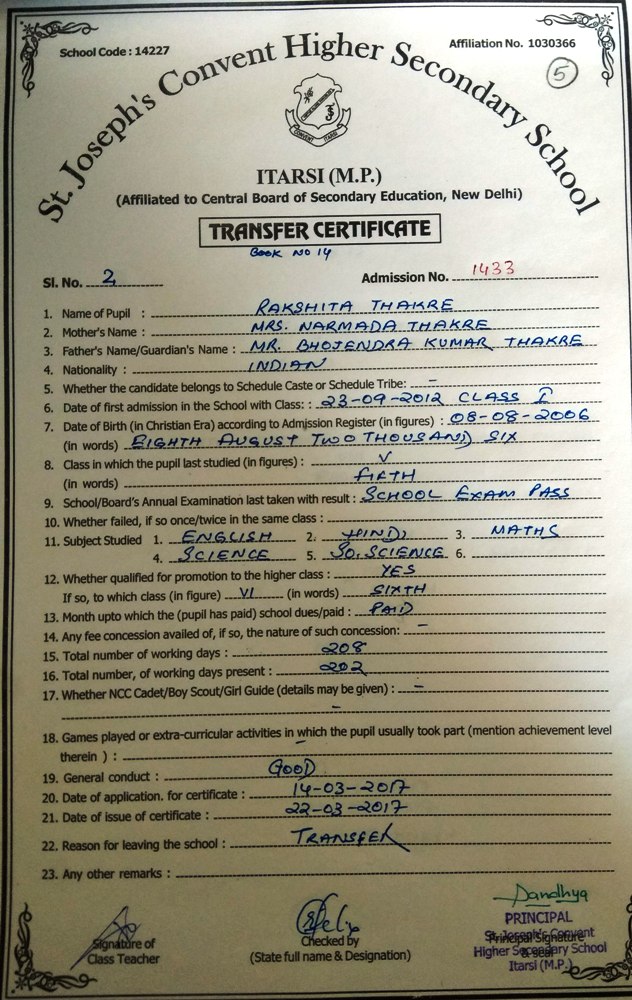 School Code : 14227
Affiliation No. 1030366
5
St. Joseph's Convent Higher Secondary School
ITARSI (M.P.)
(Affiliated to Central Board of Secondary Education, New Delhi)
TRANSFER CERTIFICATE
BOOK NO 14
Sl. No. 2 Admission No. 1433
1. Name of Pupil : RAKSHITA THAKRE
2. Mother's Name : MRS. NARMADA THAKRE
3. Father's Name/Guardian's Name : MR. BHOJENDRA KUMAR THAKRE
4. Nationality : INDIAN
5. Whether the candidate belongs to Schedule Caste or Schedule Tribe: –
6. Date of first admission in the School with Class: : 23-09-2012 CLASS I
7. Date of Birth (in Christian Era) according to Admission Register (in figures) : 08-08-2006
(in words) EIGHTH AUGUST TWO THOUSAND SIX
8. Class in which the pupil last studied (in figures) : V
(in words) FIFTH
9. School/Board's Annual Examination last taken with result : SCHOOL EXAM PASS
10. Whether failed, if so once/twice in the same class :
11. Subject Studied 1. ENGLISH 2. HINDI 3. MATHS
4. SCIENCE 5. SO. SCIENCE 6.
12. Whether qualified for promotion to the higher class : YES
If so, to which class (in figure) VI (in words) SIXTH
13. Month upto which the (pupil has paid) school dues/paid : PAID
14. Any fee concession availed of, if so, the nature of such concession: –
15. Total number of working days : 208
16. Total number, of working days present : 202
17. Whether NCC Cadet/Boy Scout/Girl Guide (details may be given) : –
–
18. Games played or extra-curricular activities in which the pupil usually took part (mention achievement level
therein ) : –
19. General conduct : GOOD
20. Date of application. for certificate : 14-03-2017
21. Date of issue of certificate : 22-03-2017
22. Reason for leaving the school : TRANSFER
23. Any other remarks :
Signature of
Class Teacher
Checked by
(State full name & Designation)
PRINCIPAL
St. Joseph's Convent
Principal Signature
& seal
Higher Secondary School
Itarsi (M.P.)